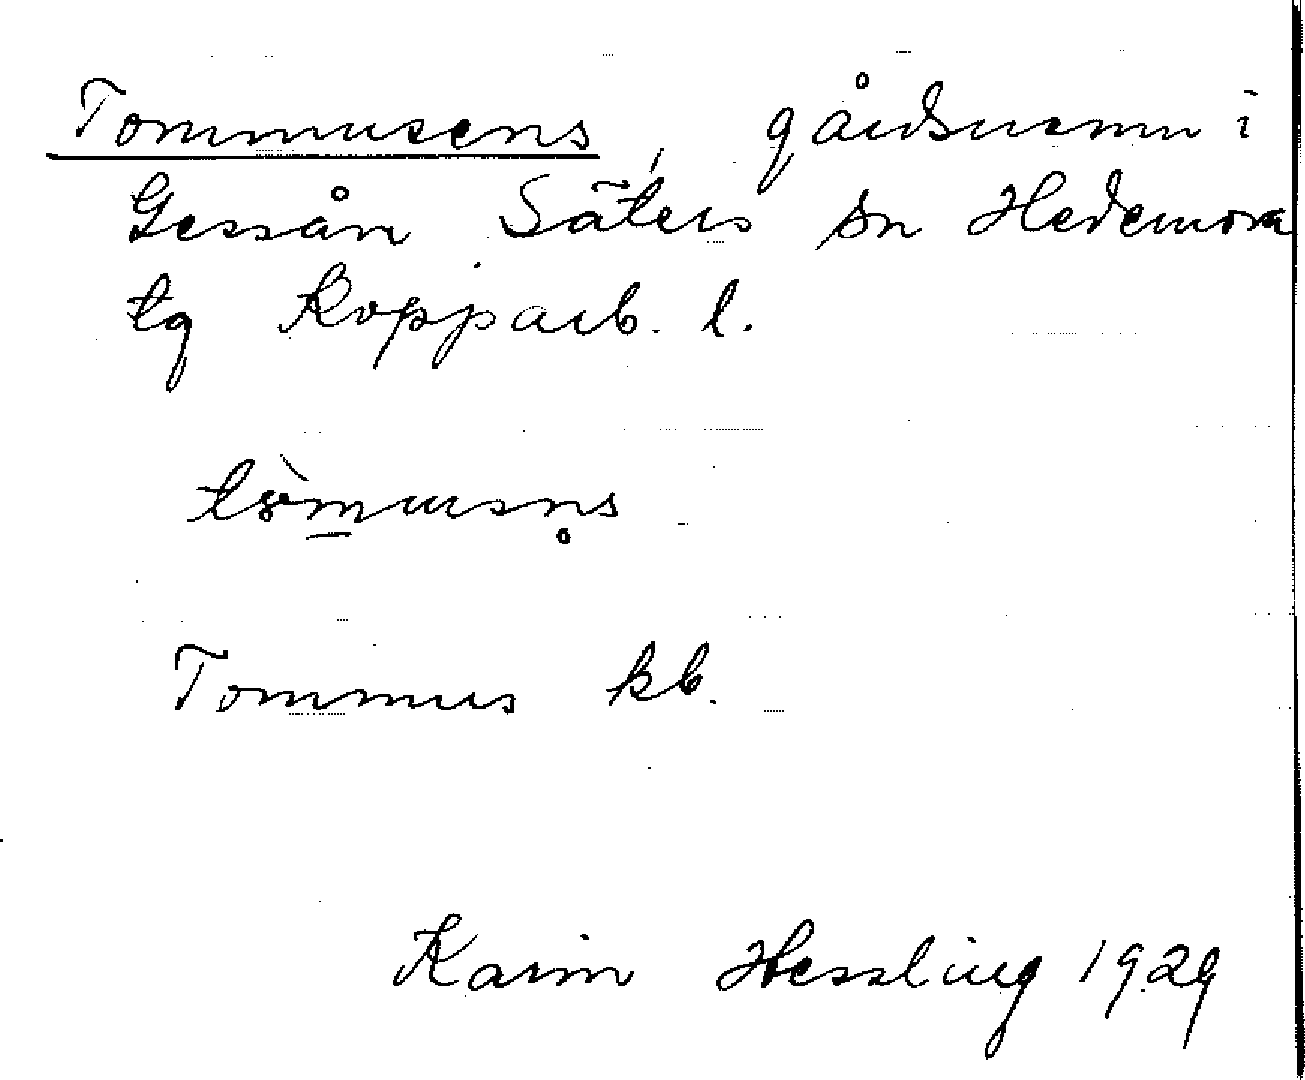 Tommusens, gårdsnamn i
Gessån Säters sn Hedemora
tg Kopparb. l.
tòmusn̥s
Tommus kb.
Karin Hessling 1929